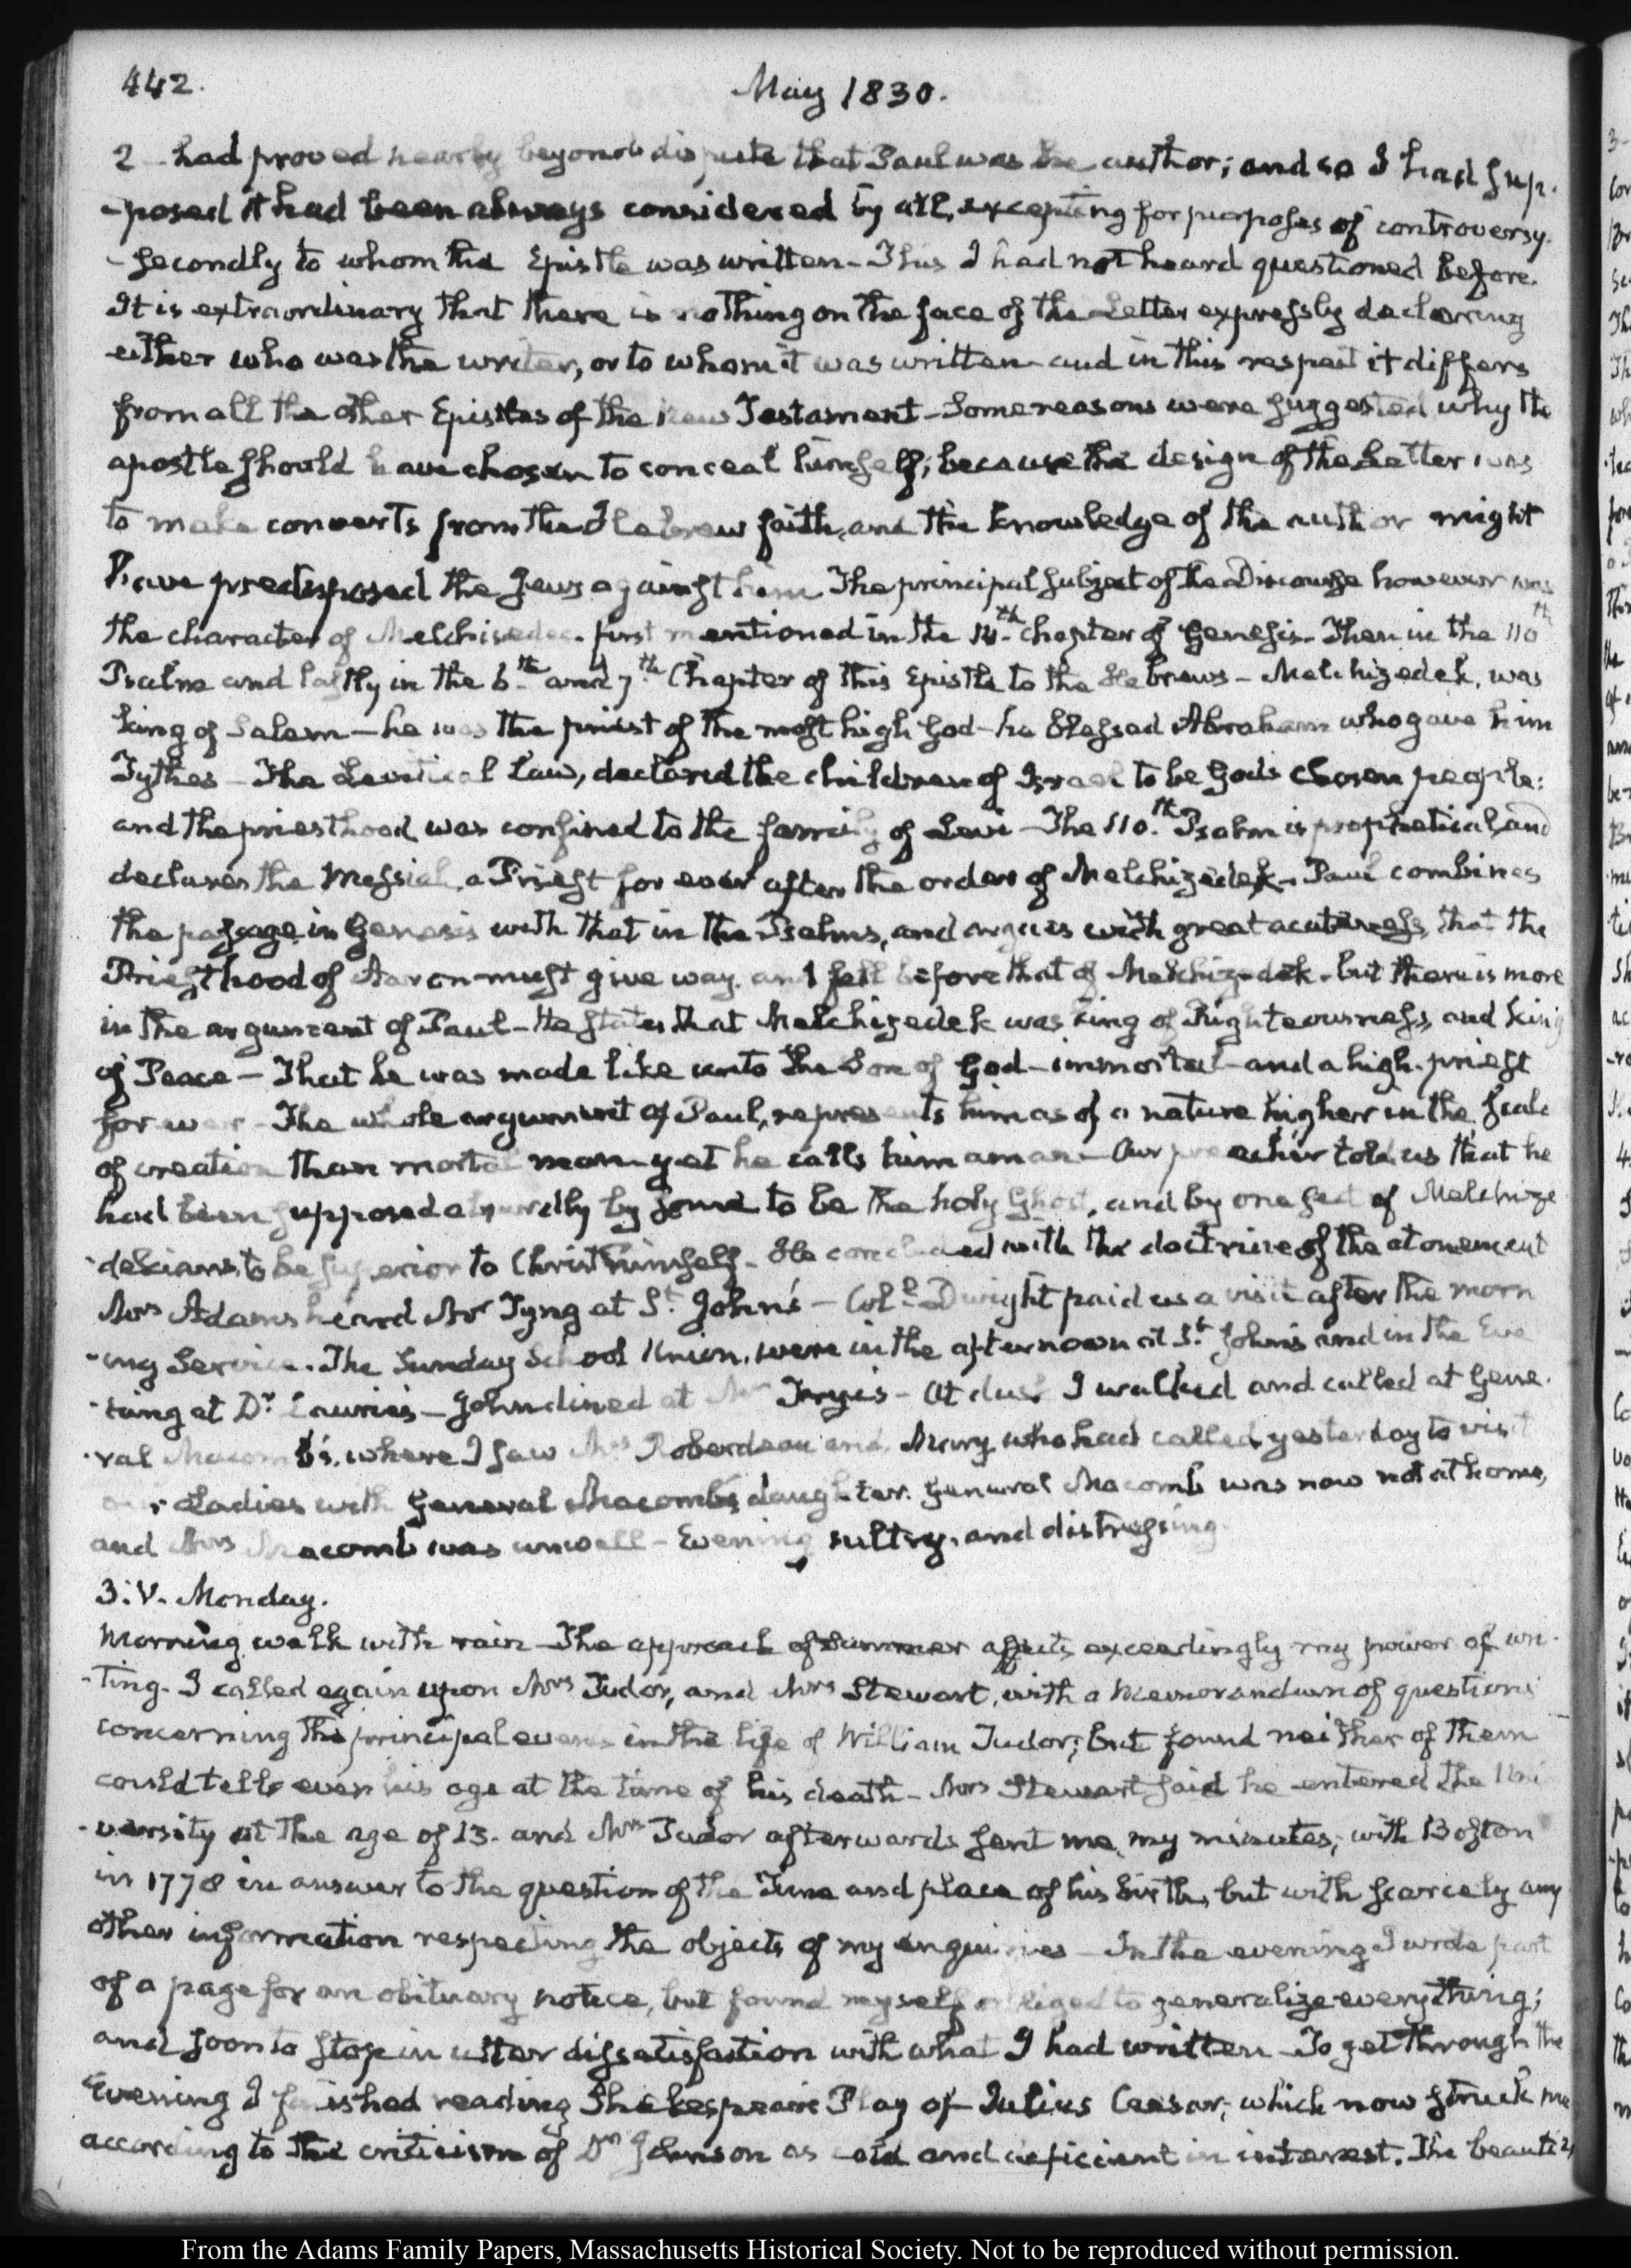 442.
May 1830.
2 had proved nearly beyond dispute that Paul was the author; and so I had sup-
-posed it had been always considered by all, excepting for purposes of controversy.
- Secondly to whom the Epistle was written - This I had not heard questioned before.
It is extraordinary that there is nothing on the face of the Letter expressly declaring
either who was the writer, or to whom it was written and in this respect it differs
from all the other Epistles of the New Testament - Some reasons were suggested why the
apostle should have chosen to conceal himself; because the design of the Letter was
to make converts from the Hebrew faith, and the knowledge of the author might
have predisposed the Jews against him. The principal subject of the Discourse however was
the character of Melchisedec. first mentioned in the 14th chapter of Genesis. Then in the 110th
Psalm and lastly in the 6th and 7th Chapter of this Epistle to the Hebrews - Melchizedek, was
king of Salem - he was the priest of the most high God - he blessed Abraham who gave him
Tythes - The Levitical Law, declared the children of Israel to be God's chosen people:
and the priesthood was confined to the family of Levi - The 110th Psalm is prophetical, and
declares the Messiah, a Priest for ever after the order of Melchizedek - Paul combines
the passage in Genesis with that in the Psalms, and argues with great acuteness, that the
Priesthood of Aaron must give way and fall before that of Melchizedek - but there is more
in the argument of Paul - He states that Melchizedek was king of Righteousness, and King
of Peace - That he was made like unto the Son of God - immortal - and a high-priest
for ever - The whole argument of Paul, represents him as of a nature higher in the scale
of creation than mortal man - yet he calls him a man - Our preacher told us that he
had been supposed absurdly by some to be the holy Ghost, and by one sect of Melchize
-dekians, to be superior to Christ himself - He concluded with the doctrine of the atonement
Mrs Adams heard Mr Tyng at St. John's - Coll. Dwight paid us a visit after the morn
-ing Service. The Sunday School Union, were in the afternoon at St. John's and in the Eve
-ning at Dr. Laurie's - John dined at Mr Frye's - At dusk I walked and called at Gene-
-ral Macomb's, where I saw Mrs Roberdeau and Mary, who had called yesterday to visit
our Ladies with General Macomb's daughter. General Macomb was now not at home,
and Mrs Macomb was unwell - Evening sultry, and distressing.
3. V. Monday.
Morning walk with rain - The approach of Summer affects exceedingly my power of wri-
-ting. I called again upon Mrs Tudor, and Mrs Stewart, with a Memorandum of questions
concerning the principal events in the life of William Tudor; but found neither of them
could tell even his age at the time of his death - Mrs Stewart said he entered the Uni
-versity at the age of 13. and Mrs Tudor afterwards sent me, my minutes, with Boston
in 1778 in answer to the question of the Time and place of his birth, but with scarcely any
other information respecting the objects of my enquiries - In the evening I wrote part
of a page for an obituary notice, but found myself obliged to generalize everything;
and soon to stop in utter dissatisfaction with what I had written - To get through the
Evening I finished reading Shakespeare's Play of Julius Caesar; which now struck me
according to the criticism of Dr Johnson as cold and deficient in interest. The beauties
From the Adams Family Papers, Massachusetts Historical Society. Not to be reproduced without permission.